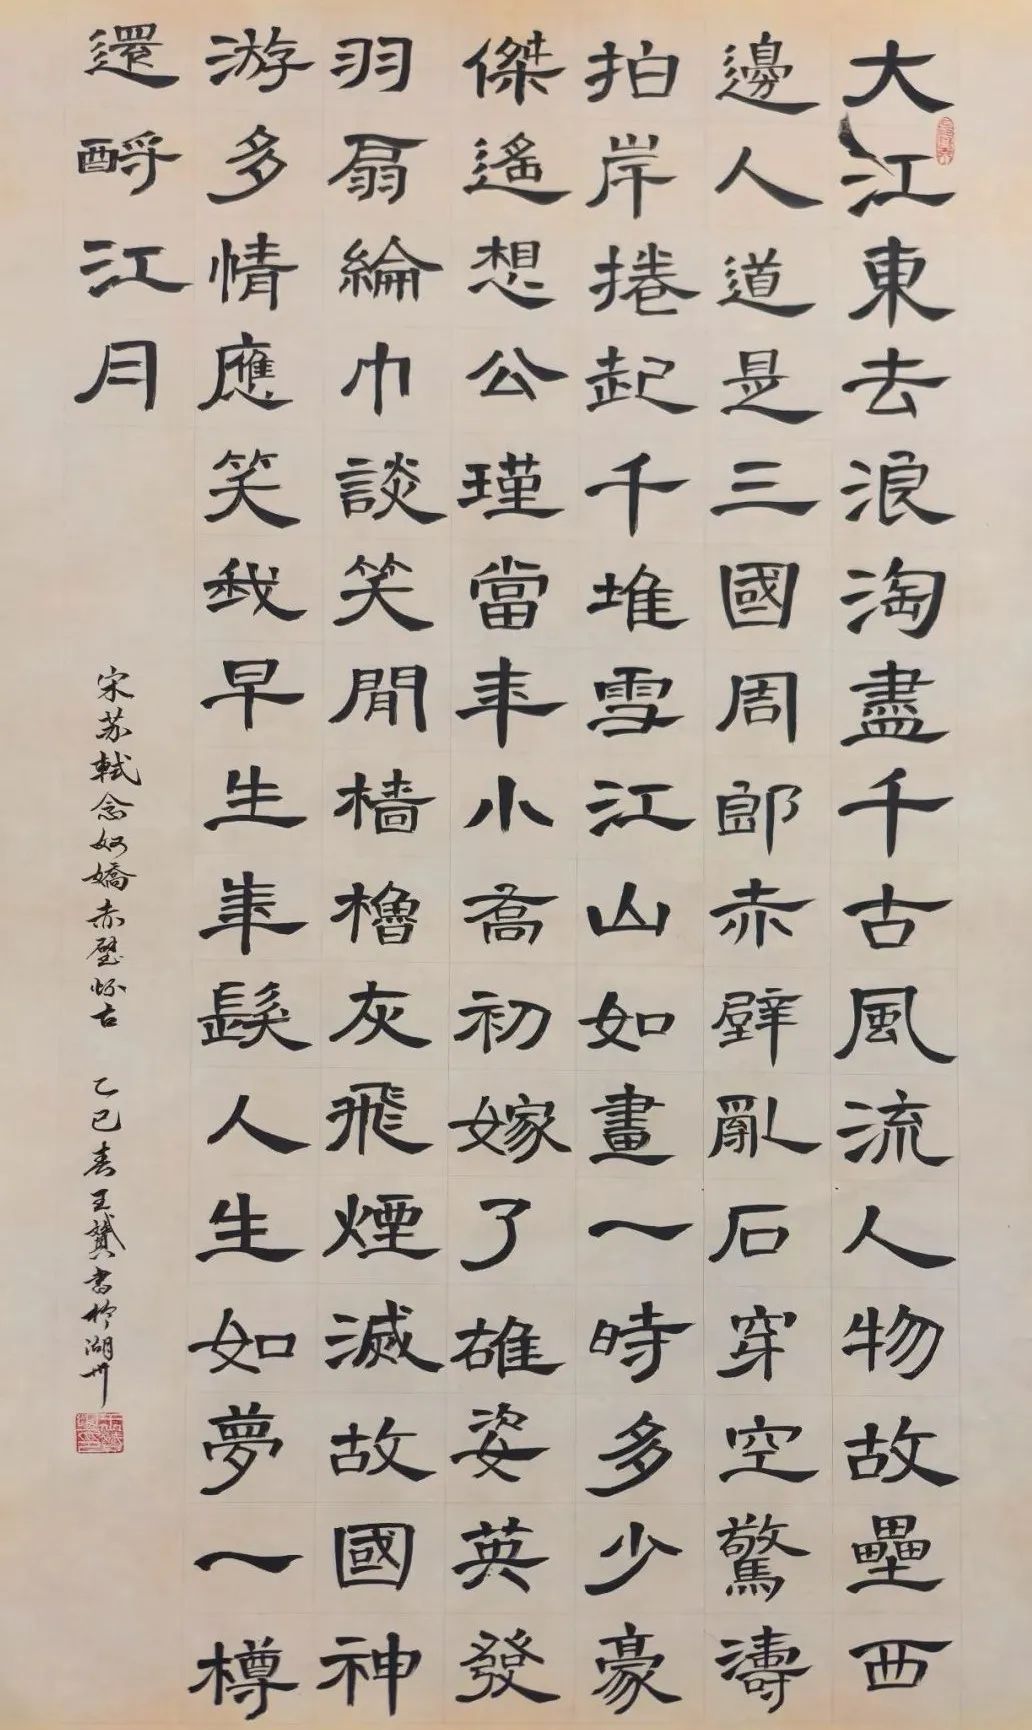 大江東去浪淘盡千古風流人物故壘西
邊人道是三國周郎赤壁亂石穿空驚濤
拍岸捲起千堆雪江山如畫一時多少豪
傑遙想公瑾當年小喬初嫁了雄姿英發
羽扇綸巾談笑間檣櫓灰飛煙滅故國神
游多情應笑我早生華髮人生如夢一樽
還酹江月
宋苏軾念奴嬌赤壁怀古 乙巳春王贇書於湖州